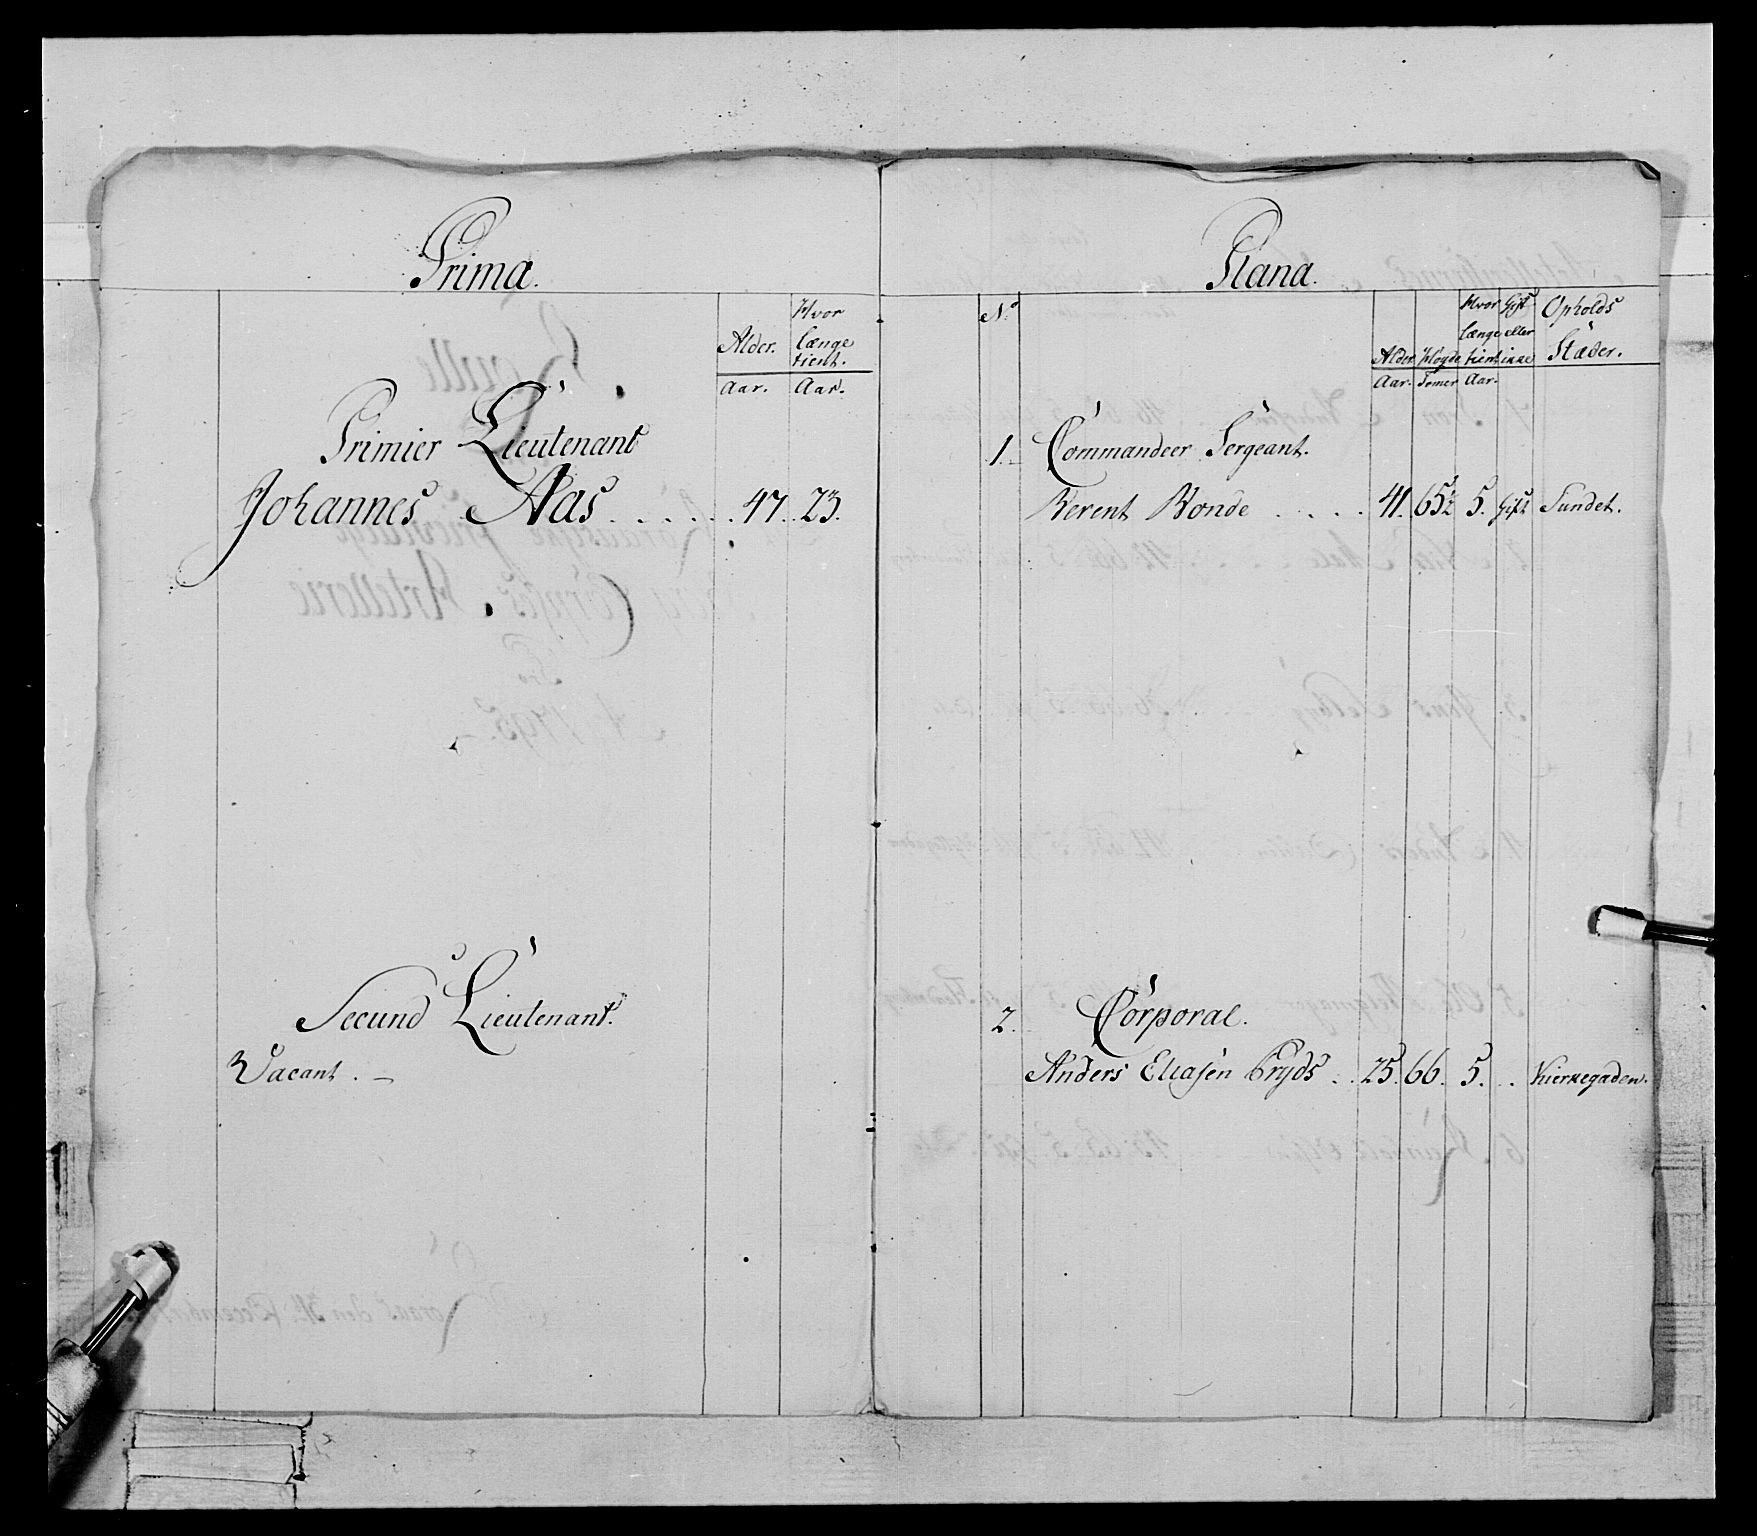 Prima.
Alder.
Hvor
Længe
tient.
Aar.
Aar.
Primier Lieutenant
Johannes Aas . . . . . . 47. 23.
Secund Lieutenant.
Vacant. –
Plana.
No
Alder
Høyde
Hvor
Længe
tient
Gift
eller
ikke
Opholds
Stæder.
Aar.
Tomer
Aar.
1. Commandeer Sergeant.
Berent Bonde . . . . 41. 65½ 5. Gift Sundet.
2. Corporal.
Anders Eliasen Bryds . . 25. 66. 5. . . Kierkegaden.